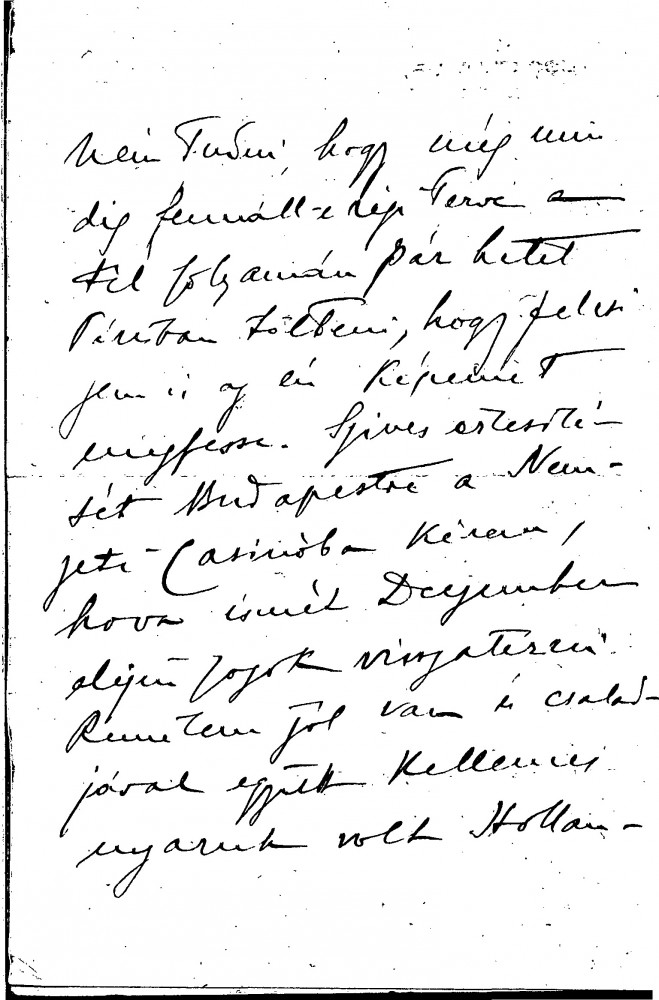 nem tudni, hogy még min
dig fennáll-e régi terve a
tél folyamán pár hetet
Párisban tölteni, hogy feles
jem is az én képemet
megfesse. Szives értesité-
sét Budapestre a Nem-
zeti-Casinóba kérem,
hova ismét Deczember
elején fogok visszatérni.
Remélem jól van és család-
jával együtt kellemes
nyaruk volt Hollan-